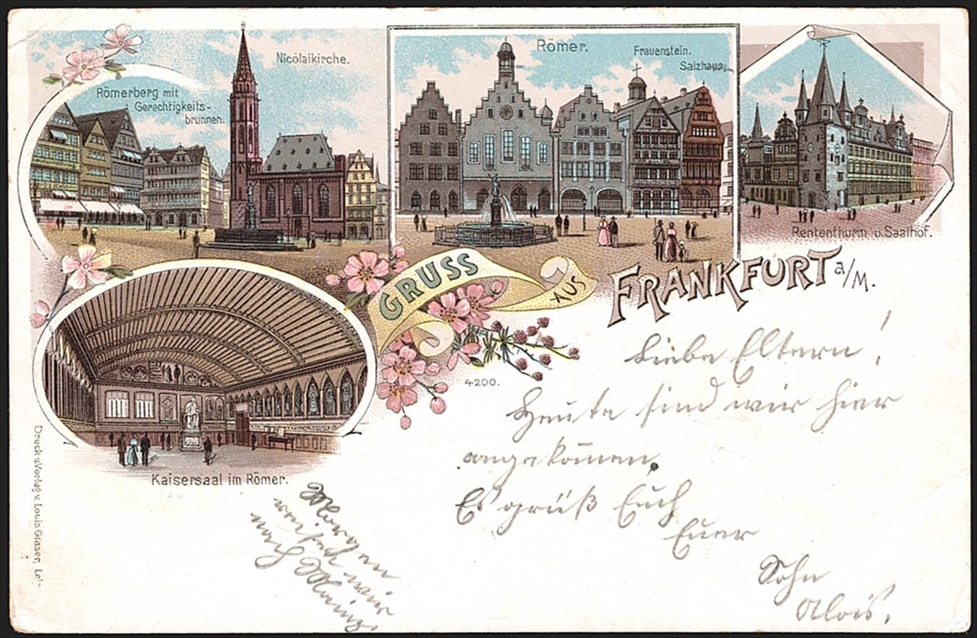 Römerberg mit
Gerechtigkeits-
brunnen.
Nicolaikirche.
Römer.
Frauenstein.
Salzhaus.
Rententhurm u. Saalhof.
GRUSS
AUS
FRANKFURT a/M.
4200.
Kaisersaal im Römer.
Druck u. Verlag v. Louis Glaser, Lei-
Liebe Eltern!
Heute sind wir hier
angekommen.
Es grüß Euch
Euer
Sohn
Alois.
Morgen
reisen wir
nach Mainz.